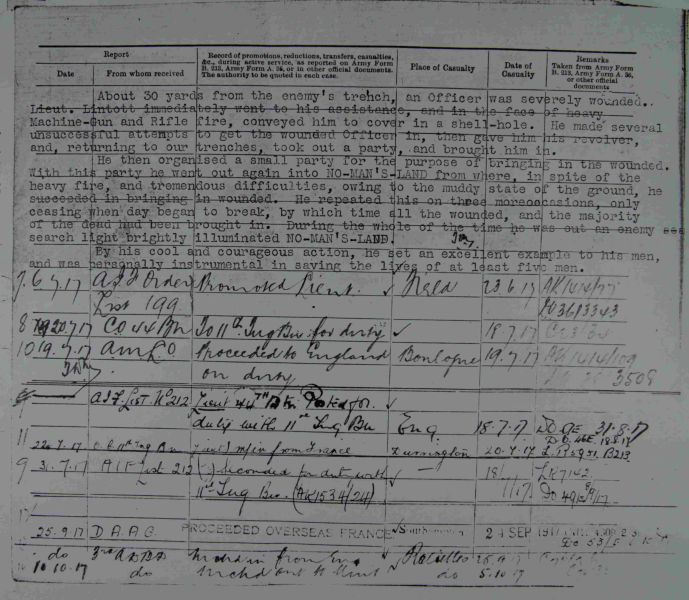 Report
Record of promotions, reductions, transfers, casualties,
&c., during active service, as reported on Army Form
B. 213, Army Form A. 36, or in other official documents.
The authority to be quoted in each case.
Place of Casualty
Date of
Casualty
Remarks
Taken from Army Form
B. 213, Army Form A. 36,
or other official
documents
Date
From whom received
About 30 yards from the enemy's trench, an Officer was severely wounded.
Lieut. Lintott immediately went to his assistance, and in the face of heavy
Machine-Gun and Rifle fire, conveyed him to cover in a shell-hole. He made several
unsuccessful attempts to get the wounded Officer in, then gave him his revolver,
and, returning to our trenches, took out a party, and brought him in.
He then organised a small party for the purpose of bringing in the wounded.
With this party he went out again into NO-MAN'S-LAND from where, in spite of the
heavy fire, and tremendous difficulties, owing to the muddy state of the ground, he
succeeded in bringing in wounded. He repeated this on three moreoccasions, only
ceasing when day began to break, by which time all the wounded, and the majority
of the dead had been brought in. During the whole of the time he was out an enemy
search light brightly illuminated NO-MAN'S-LAND.
By his cool and courageous action, he set an excellent example to his men,
and was personally instrumental in saving the lives of at least five men.
6.7.17 Promoted Lieut. Field 23.6.17
List 199
8 20.7.17 CO 44 Bn To 11th Trg Bn for duty 18.7.17
10 19.7.17 Proceeded to England Boulogne 19.7.17
on duty 3508
AIF List No 212 Lieut 44th Bn for
duty with 11th Trg Bn Eng. 18.7.17 31.8.17
11 22.7.17 O.C. 11th Trg Bn from France Durrington 20.7.17 B213
9 31.7.17 AIF List 212 seconded for duty with 18/7/17
11th Trg Bn. (AK1534/24)
25.9.17 D A A G PROCEEDED OVERSEAS FRANCE Southampton 2 SEP 1917
do Marchd in from Eng Rouelles
10.10.17 do Marchd out to Unit do 5.10.17